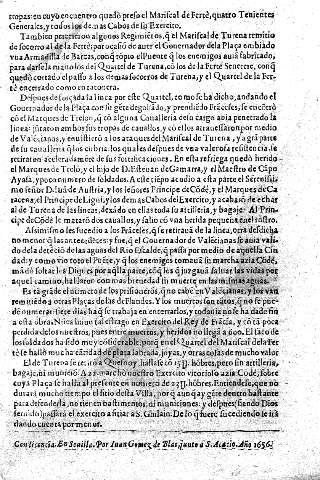 tropas: en cuyo encuentro quedò preso el Mariscal de Fertè, quatro Tenientes
Generales, y todos los de mas Cabos de su Exercito.
Tambien perecieron algunos Regimientos, q̃ el Mariscal de Turena remitio
de socorro al de la Fertè; por ocasiõ de auer el Governador de la Plaça embiado
vna Armadilla de Barcas, con q̃ ropio el Puente q̃ los enemigos auiã fabricado,
para darse la mano los del Quartel de Turena, cõ los de la Fertè Senetere, con q̃
quedò cortado el passo a los demas socorros de Turena, y el Quartel de la Fer-
tè encerrado como en ratonera.
Despues de forçada la linea por este Quartel, como se ha dicho, andando el
Governador de la Plaça
el Marques de Treslon, q̃ cõ alguna Cavalleria
linea: jutarõ ambos sus tropas de cavallos, y cõ ellos atravesarõ por medio
de Valencianes, y envistierõ a los ataques del Mariscal de Turena, y a grã parte
de su cavalleria q̃ los cubria, los quales despues de vna valerosa resistencia, se
retiraron aceleradamẽte de sus fortificaciones. En esta refriega quedò herido
el Marques de Treslo, y el hijo de D. Estevan de Gamarra, y el Maestro de Cãpo
Ayasa, y poco numero de soldados. A este tiẽpo acudio a esta parte el Serenissi-
mo señor D. Iuã de Austria, y los señores Principe de Cõdè, y el Marques de Ca-
racena; el Principe de Ligni, y los demas Cabos del Exercito, y acabarõ de echar
al de Turena de las lineas, dexãdo en ellas toda su artilleria, y bagaje. Al Prin-
cipe de Cõdè le matarõ dos cauallos, y salio cõ vna herida pequeña en el
Assimismo les sucedio a los Frãceses, q̃ se retiravã de la linea, otra desdicha
no menor q̃ las antecedẽtes; y fue, q̃ el Governador de Valencianas
do de la deteciõ de las aguas del Rio Escalde, q̃ passa por medio de aquella Ciu-
dad; y como vio roto el Puẽte, y q̃ los enemigos tomavã su marcha azia Cõdè,
mãdò soltar los Diques por aq̃lla parte, cõ q̃ los q̃ juzgavã salvar las vidas por
aquel camino, hallaron con mas brevedad su muerte en las mismas aguas.
Es tã grãde el numero de los prisioneros, q̃ no cabẽ en Valencianes, y los vã
remitiẽdo a otras Plaças de las de Flandes. Y los muertos son tãtos, q̃ no se pue-
dẽ numerar; tiene dias hà q̃ se trabaja en enterrarlos, y todavia no se ha dado fin
a esta obra. Nũca se viò tal estrago en Exercito del Rey de Frãcia, y cõ tã poca
perdida de los nuestros, pues entre muertos, y heridos no llegã a 600. El saco de
los soldados ha sido muy considerable, porq̃ en el Quartel del Mariscal de la Fer-
tè se hallò mucha cãtidad de plata labrada, joyas, y otras cosas de mucho valor
El de Turena se retirò a Quesnoy, hallase cõ 15ỹ. hõbres, pero sin artilleria,
bagaje, ni municiõ. A 22. marchò nuestro Exercito vitorioso azia Condè, sobre
cuya Plaça se halla al presente en numero de 23ỹ. hõbres. Entiendese, que no
durarà mucho tiempo el sitio desta Villa, porq̃ aunq̃ ay gẽte dentro bastante
para defenderla, no tienen bastimentos, ni municiones; y despues, siendo Dios
servido, passarà el exercito a sitiar a S. Guislain. De lo q̃ fuere sucediendo se irà
dando cuenta por menor.
Con licencia. En Sevilla, Por Iuan Gomez de Blas, junto a S. Acasio. Año 1656.